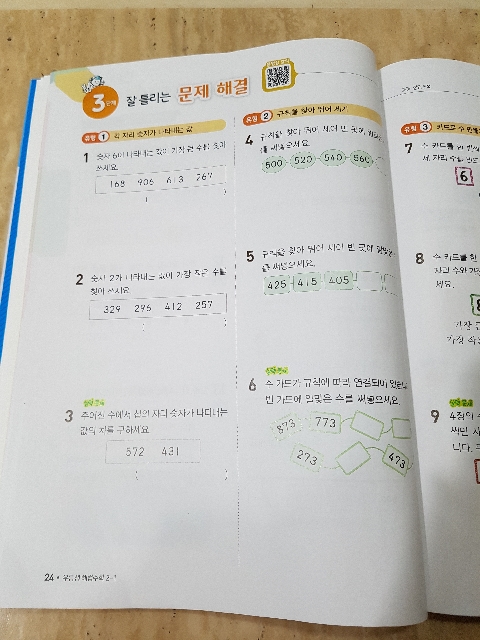 3단계 잘 틀리는 문제 해결
유형 1 각 자리 숫자가 나타내는 값
1 숫자 6이 나타내는 값이 가장 큰 수를 찾아
쓰세요.
168 906 613 267
( )
2 숫자 2가 나타내는 값이 가장 작은 수를
찾아 쓰세요.
329 296 412 257
( )
3
주어진 수에서 십의 자리 숫자가 나타내는
값의 차를 구하세요.
572 431
( )
유형 2 규칙을 찾아 뛰어 세기
4 규칙을 찾아 뛰어 세어 빈 곳에 알맞은
를 써넣으세요.
500 520 540 560
5 규칙을 찾아 뛰어 세어 빈 곳에 알맞은
를 써넣으세요.
425 415 405
6 수 카드가 규칙에 따라 연결되어 있습니다.
빈 카드에 알맞은 수를 써넣으세요.
873 773
273 473
유형 3 카드로 수 만들
7 수 카드를 한 번씩
세 자리 수를 만
6
8 수 카드를 한
자리 수와 가장
세요.
가장
가장 작
9 4장의
씩만 사
니다.
24